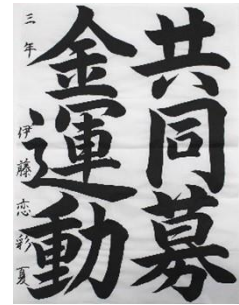 共同募
金運動
三年 伊藤恋彩夏